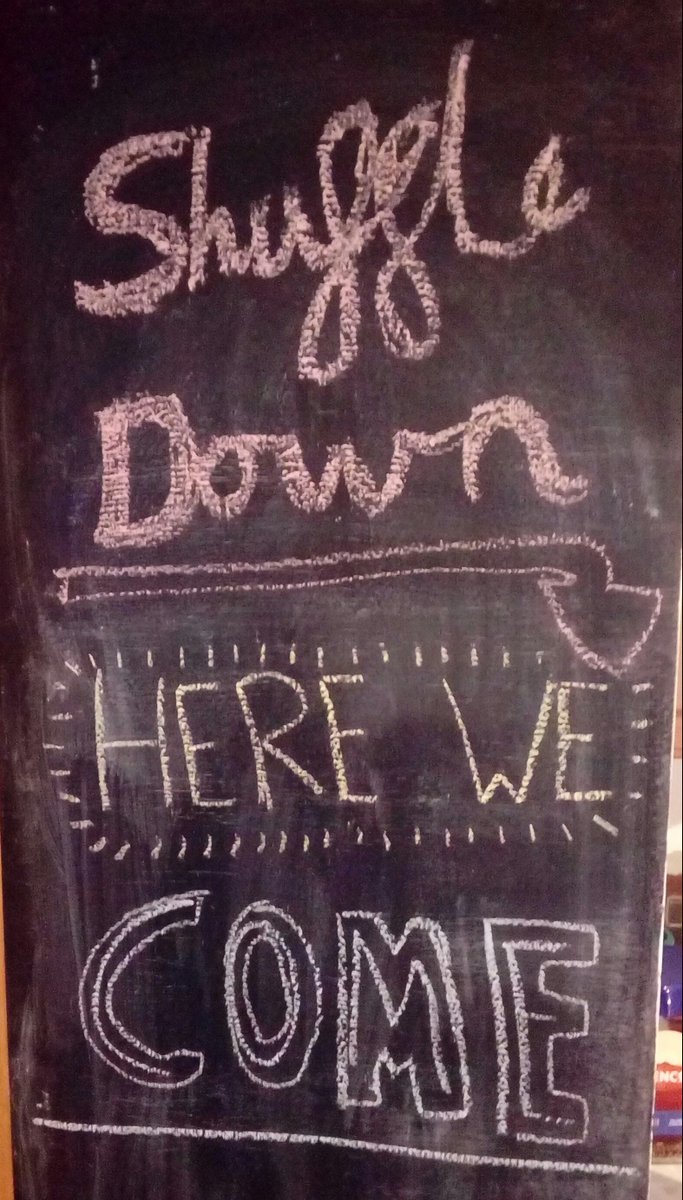 Shuggle
Down
HERE WE
COME